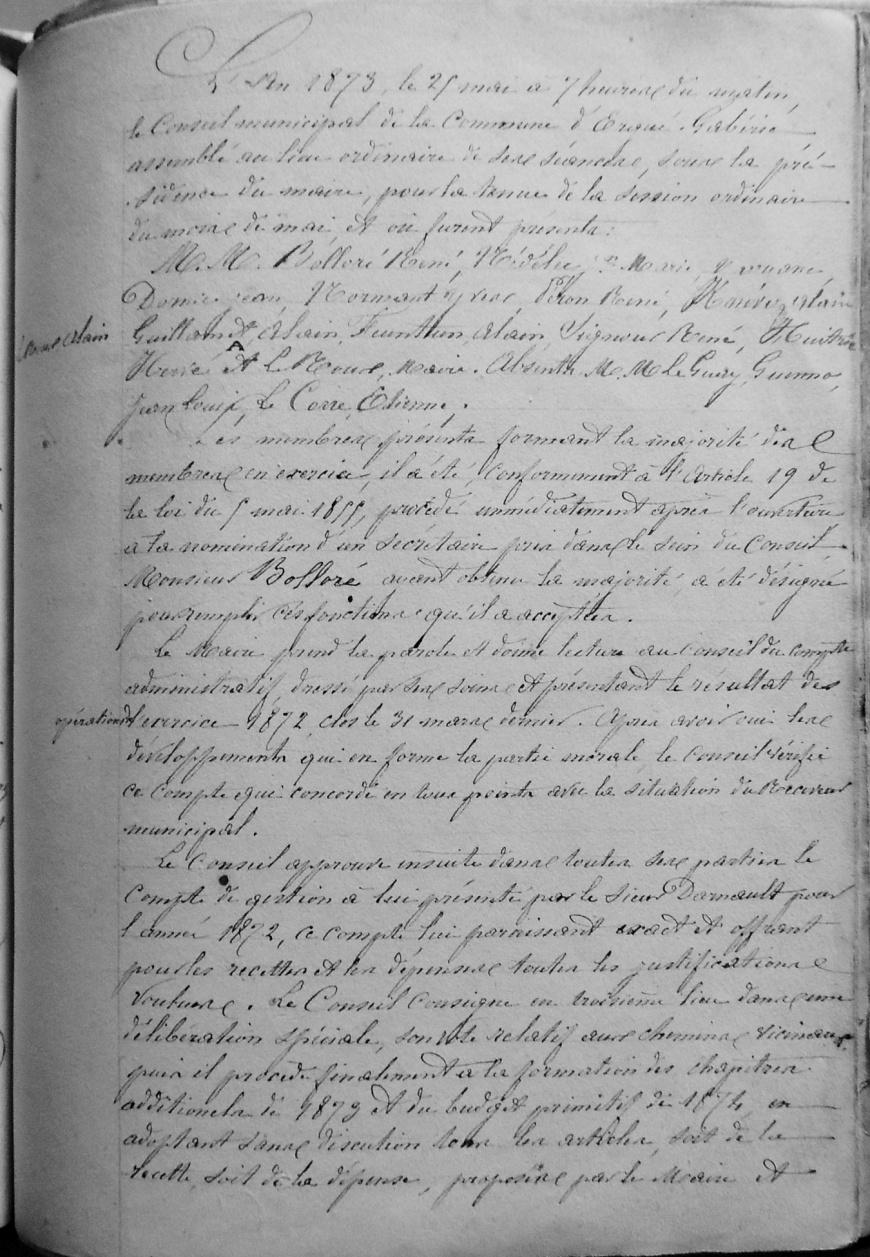 L'An 1873, le 25 mai à 7 heures du matin,
le Conseil municipal de la Commune d'Ergué-Gabéric
assemblé au lieu ordinaire de ses séances, sous la pré-
sidence du maire, pour la tenue de la session ordinaire
du mois de mai, et où furent présents:
M. M. Bolloré René, Nédélec, Marie,
Domic jean, Normant Yves, René, Alain
Guillam et, Alain, Feunteun, Alain, Signour René,
Le Roux Alain
Hervé Et Le Roux, Maire. Absents M. M. Le Guay, Guennou,
Jean Louis, Le Corre, Etienne,
Les membres présents formant la majorité des
membres en exercice, il a été, conformément à l'Article 19 de
la loi du 5 mai 1855, procédé immédiatement après l'ouverture
à la nomination d'un secrétaire pris dans le sein du Conseil.
Monsieur Bolloré ayant obtenu la majorité, a été désigné
pour remplir ces fonctions qu'il a acceptées.
Le Maire prend la parole et donne lecture au Conseil du compte
administratif, dressé par ses soins et présentant le résultat des
opérations de l'exercice 1872, clos le 31 mars dernier. Après avoir oui les
développements qui en forme la partie morale, le Conseil vérifie
ce compte qui concorde en tous points avec la situation du Receveur
municipal.
Le Conseil approuve ensuite dans toutes ses parties le
Compte de gestion à lui présenté par le sieur Darnault pour
l'année 1872, ce compte lui paraissant exact et offrant
pour les recettes et les dépenses toutes les justifications
voulues. Le Conseil consigne en troisième lieu dans une
délibération spéciale, son vote relatif aux chemins vicinaux.
puis il procède finalement à la formation des chapitres
additionels de 1873 et du budget primitif de 1874, en
adoptant sans discution tous les articles, soit de la
recette, soit de la dépense, proposés par le Maire et